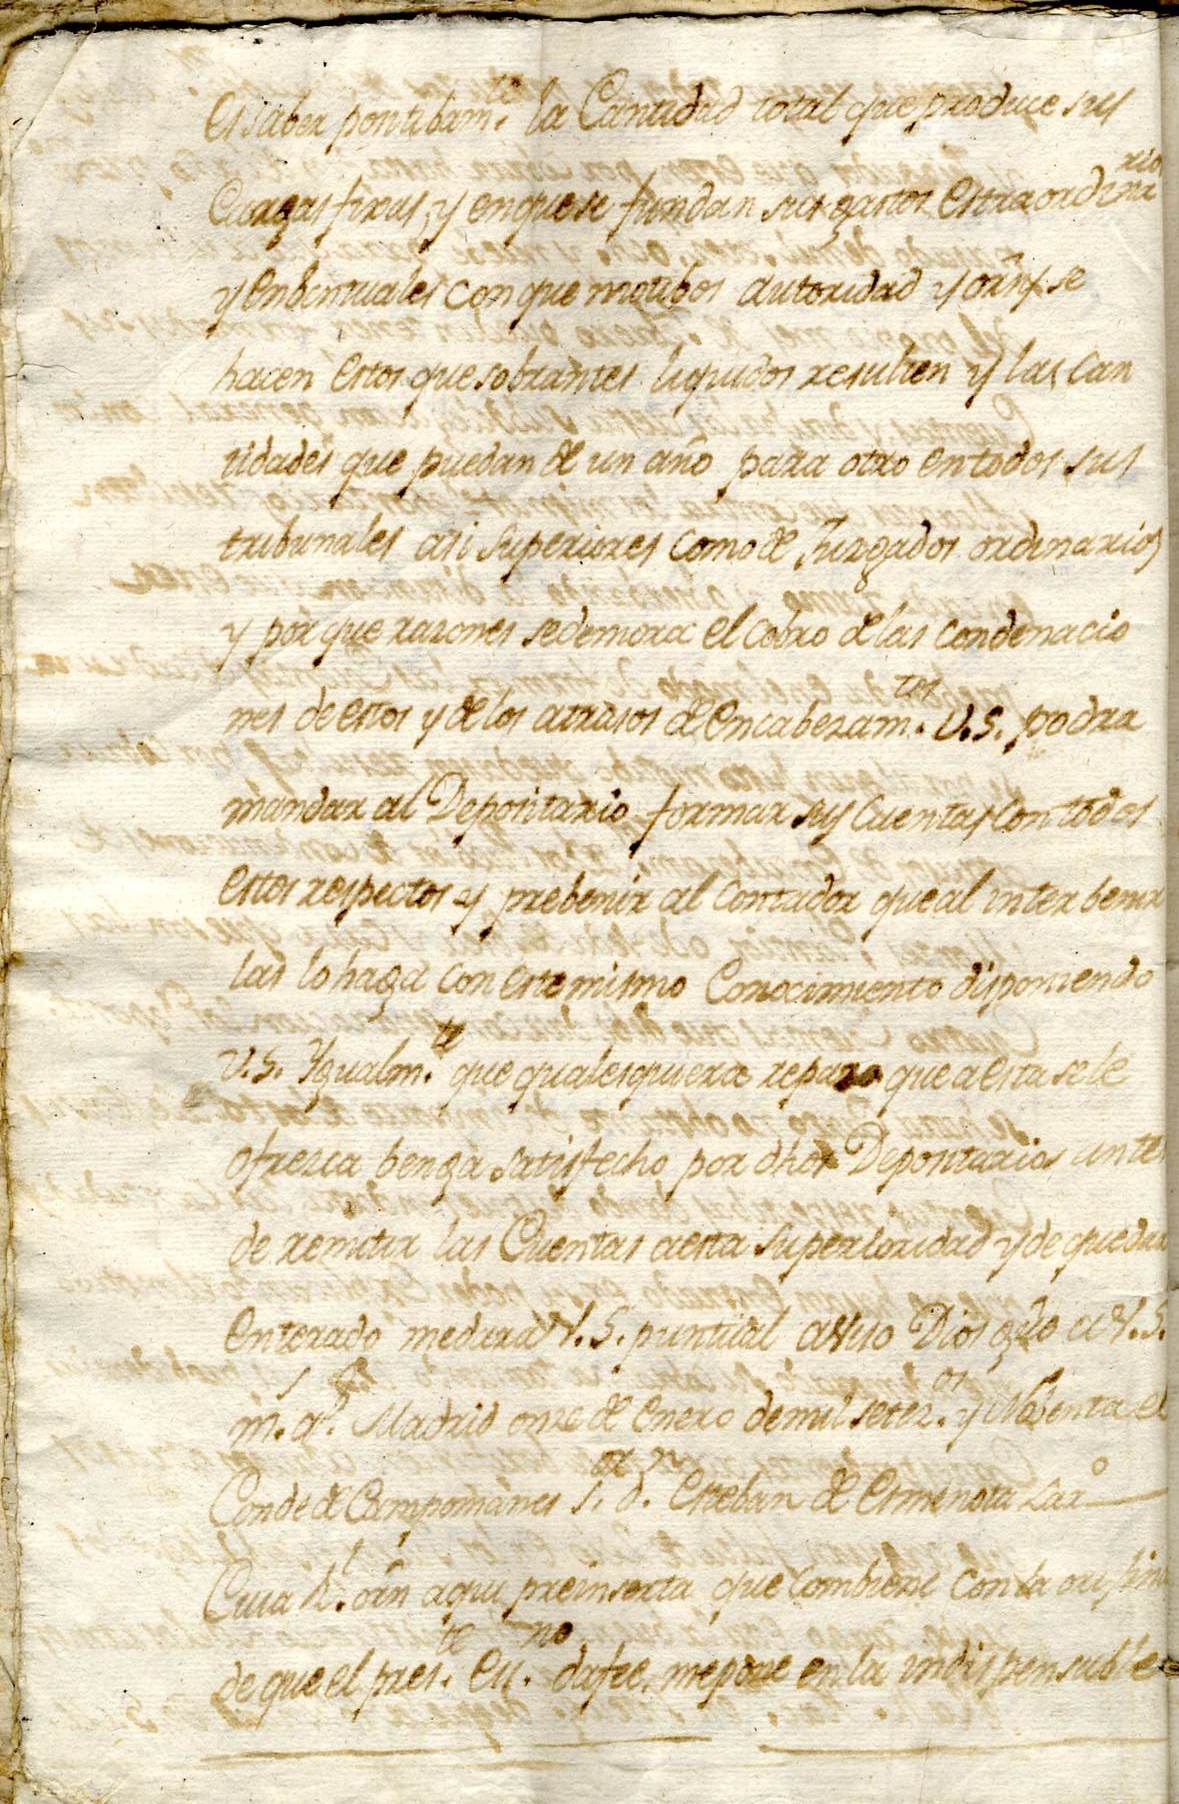 es saber positibam.te la Cantidad total que produce sus
Cargas fixas, y enquese fundan sus gastos extraordinarios
y enbentuales con que motibos autoridad y orn. se
hacen estos que sobrantes liquidos resulten y las Can
tidades que puedan de un año para otro entodos sus
tribunales asi Superiores como de Juzgados ordinarios
y por que razones sedemora el cobro de las condenacio
nes de estos y de los atrasos de encabezam.tos V.S. podra
mandar al Depositario formar sus Cuentas con todos
estos respectos y prebenir al Contador que al interbenir
las lo haga con este mismo Conocimiento disponiendo
V.S. Ygualm.te que qualesquiera reparo que a esta se le
ofrezca benga satisfecho por dhos Depositarios antes
de remitir las Cuentas aesta Superioridad y de quedar
enterado medara V.S. puntual abiso Dios gde a V.S.
m.s a.s Madrid onze de Enero demil setez.os y Nobenta el
Conde de Campomanes S.or d.n Esteban de
Cuia R.l orn aqui preinserta que combiene con la
de que el pres.te Es.no dafee, mepone en la indispensable